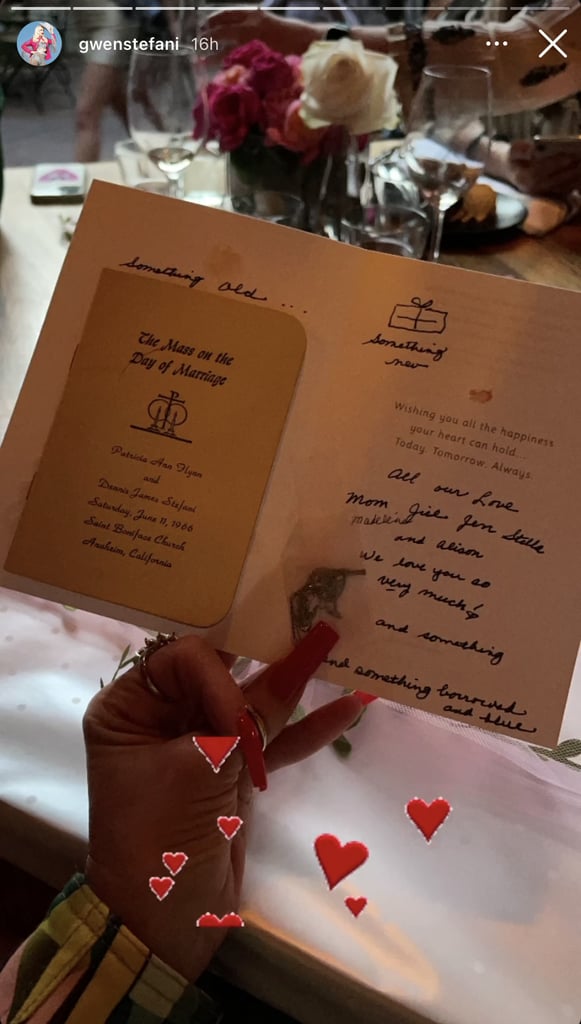 gwenstefani 16h
Something old ...
The Mass on the
Day of Marriage
Patricia Ann Flynn
and
Dennis James Stefani
Saturday, June 11, 1966
Saint Boniface Church
Anaheim, California
Something
new
Wishing you all the happiness
your heart can hold...
Today. Tomorrow. Always.
All our Love
Mom Jill Jen Stella
madeleine
and Alison
We love you so
very much!
and something
and something borrowed
and blue